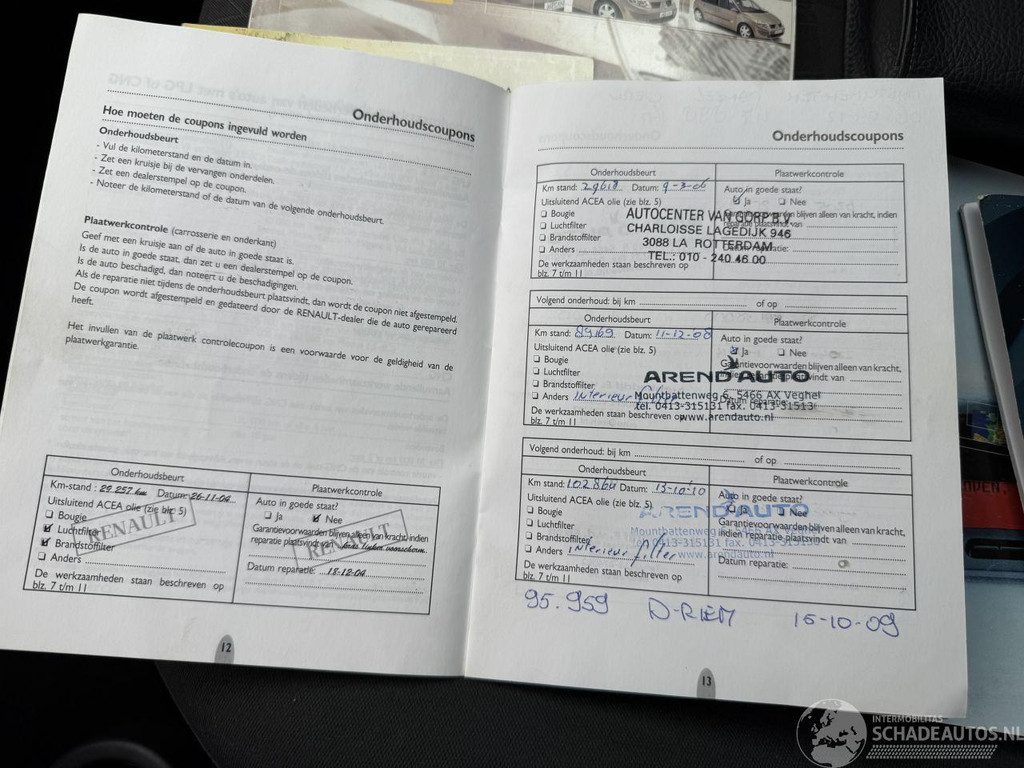 Onderhoudscoupons
Hoe moeten de coupons ingevuld worden
Onderhoudsbeurt
- Vul de kilometerstand en de datum in.
- Zet een kruisje bij de vervangen onderdelen.
- Zet een dealerstempel op de coupon.
- Noteer de kilometerstand of de datum van de volgende onderhoudsbeurt.
Plaatwerkcontrole (carrosserie en onderkant)
Geef met een kruisje aan of de auto in goede staat is.
Is de auto in goede staat, dan zet u een dealerstempel op de coupon.
Is de auto beschadigd, dan noteert u de beschadigingen.
Als de reparatie niet tijdens de onderhoudsbeurt plaatsvindt, dan wordt de coupon niet afgestempeld.
De coupon wordt afgestempeld en gedateerd door de RENAULT-dealer die de auto gerepareerd
heeft.
Het invullen van de plaatwerk controlecoupon is een voorwaarde voor de geldigheid van de
plaatwerkgarantie.
Onderhoudsbeurt
Km-stand : 29.257 km Datum: 26-11-04
Uitsluitend ACEA olie (zie blz. 5)
Bougie
Luchtfilter
Brandstoffilter
Anders
De werkzaamheden staan beschreven op
blz. 7 t/m 11
RENAULT
Plaatwerkcontrole
Auto in goede staat?
Ja Nee
Garantievoorwaarden blijven alleen van kracht, indien
reparatie plaatsvindt van
RENAULT
Datum reparatie: 18-12-04
12
Onderhoudscoupons
Onderhoudsbeurt
Km stand: Datum: 9-3-06
Uitsluitend ACEA olie (zie blz. 5)
Bougie
Luchtfilter
Brandstoffilter
Anders
De werkzaamheden staan beschreven op
blz. 7 t/m 11
Plaatwerkcontrole
Auto in goede staat?
Ja Nee
Garantievoorwaarden blijven alleen van kracht, indien
reparatie plaatsvindt van
Datum reparatie:
AUTOCENTER VAN GORP B.V.
CHARLOISSE LAGEDIJK 946
3088 LA ROTTERDAM
TEL.: 010 - 240 46 00
Volgend onderhoud: bij km of op
Onderhoudsbeurt
Km stand: 89169 Datum: 11-12-08
Uitsluitend ACEA olie (zie blz. 5)
Bougie
Luchtfilter
Brandstoffilter
Anders Interieur
De werkzaamheden staan beschreven op
blz. 7 t/m 11
Plaatwerkcontrole
Auto in goede staat?
Ja Nee
Garantievoorwaarden blijven alleen van kracht,
indien reparatie plaatsvindt van
Datum reparatie:
AREND AUTO
Mountbattenweg 6, 5466 AX Veghel
tel. 0413-315131 fax. 0413-31513
www.arendauto.nl
Volgend onderhoud: bij km of op
Onderhoudsbeurt
Km stand: 102864 Datum: 13-10-10
Uitsluitend ACEA olie (zie blz. 5)
Bougie
Luchtfilter
Brandstoffilter
Anders Interieur filter
De werkzaamheden staan beschreven op
blz. 7 t/m 11
Plaatwerkcontrole
Auto in goede staat?
Ja Nee
Garantievoorwaarden blijven alleen van kracht,
indien reparatie plaatsvindt van
Datum reparatie:
AREND AUTO
Mountbattenweg 6, 5466 AX Veghel
tel. 0413-315131 fax. 0413-31513
www.arendauto.nl
95.959 D-RIEM 15-10-09
13
INTERMOBILITAS
SCHADEAUTOS.NL